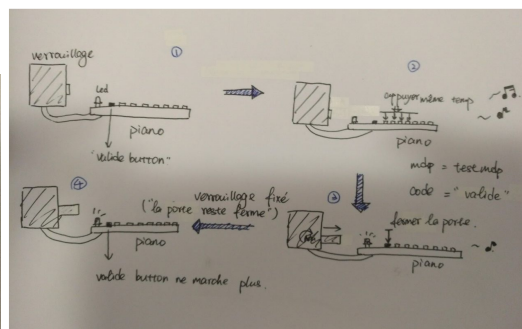 verrouillage
①
led
piano
"valide button"
②
appuyer même temp
piano
mdp = test.mdp
code = "valide"
③
fermer la porte.
piano
verrouillage fixé
("la porte reste fermé")
④
piano
valide button ne marche plus.